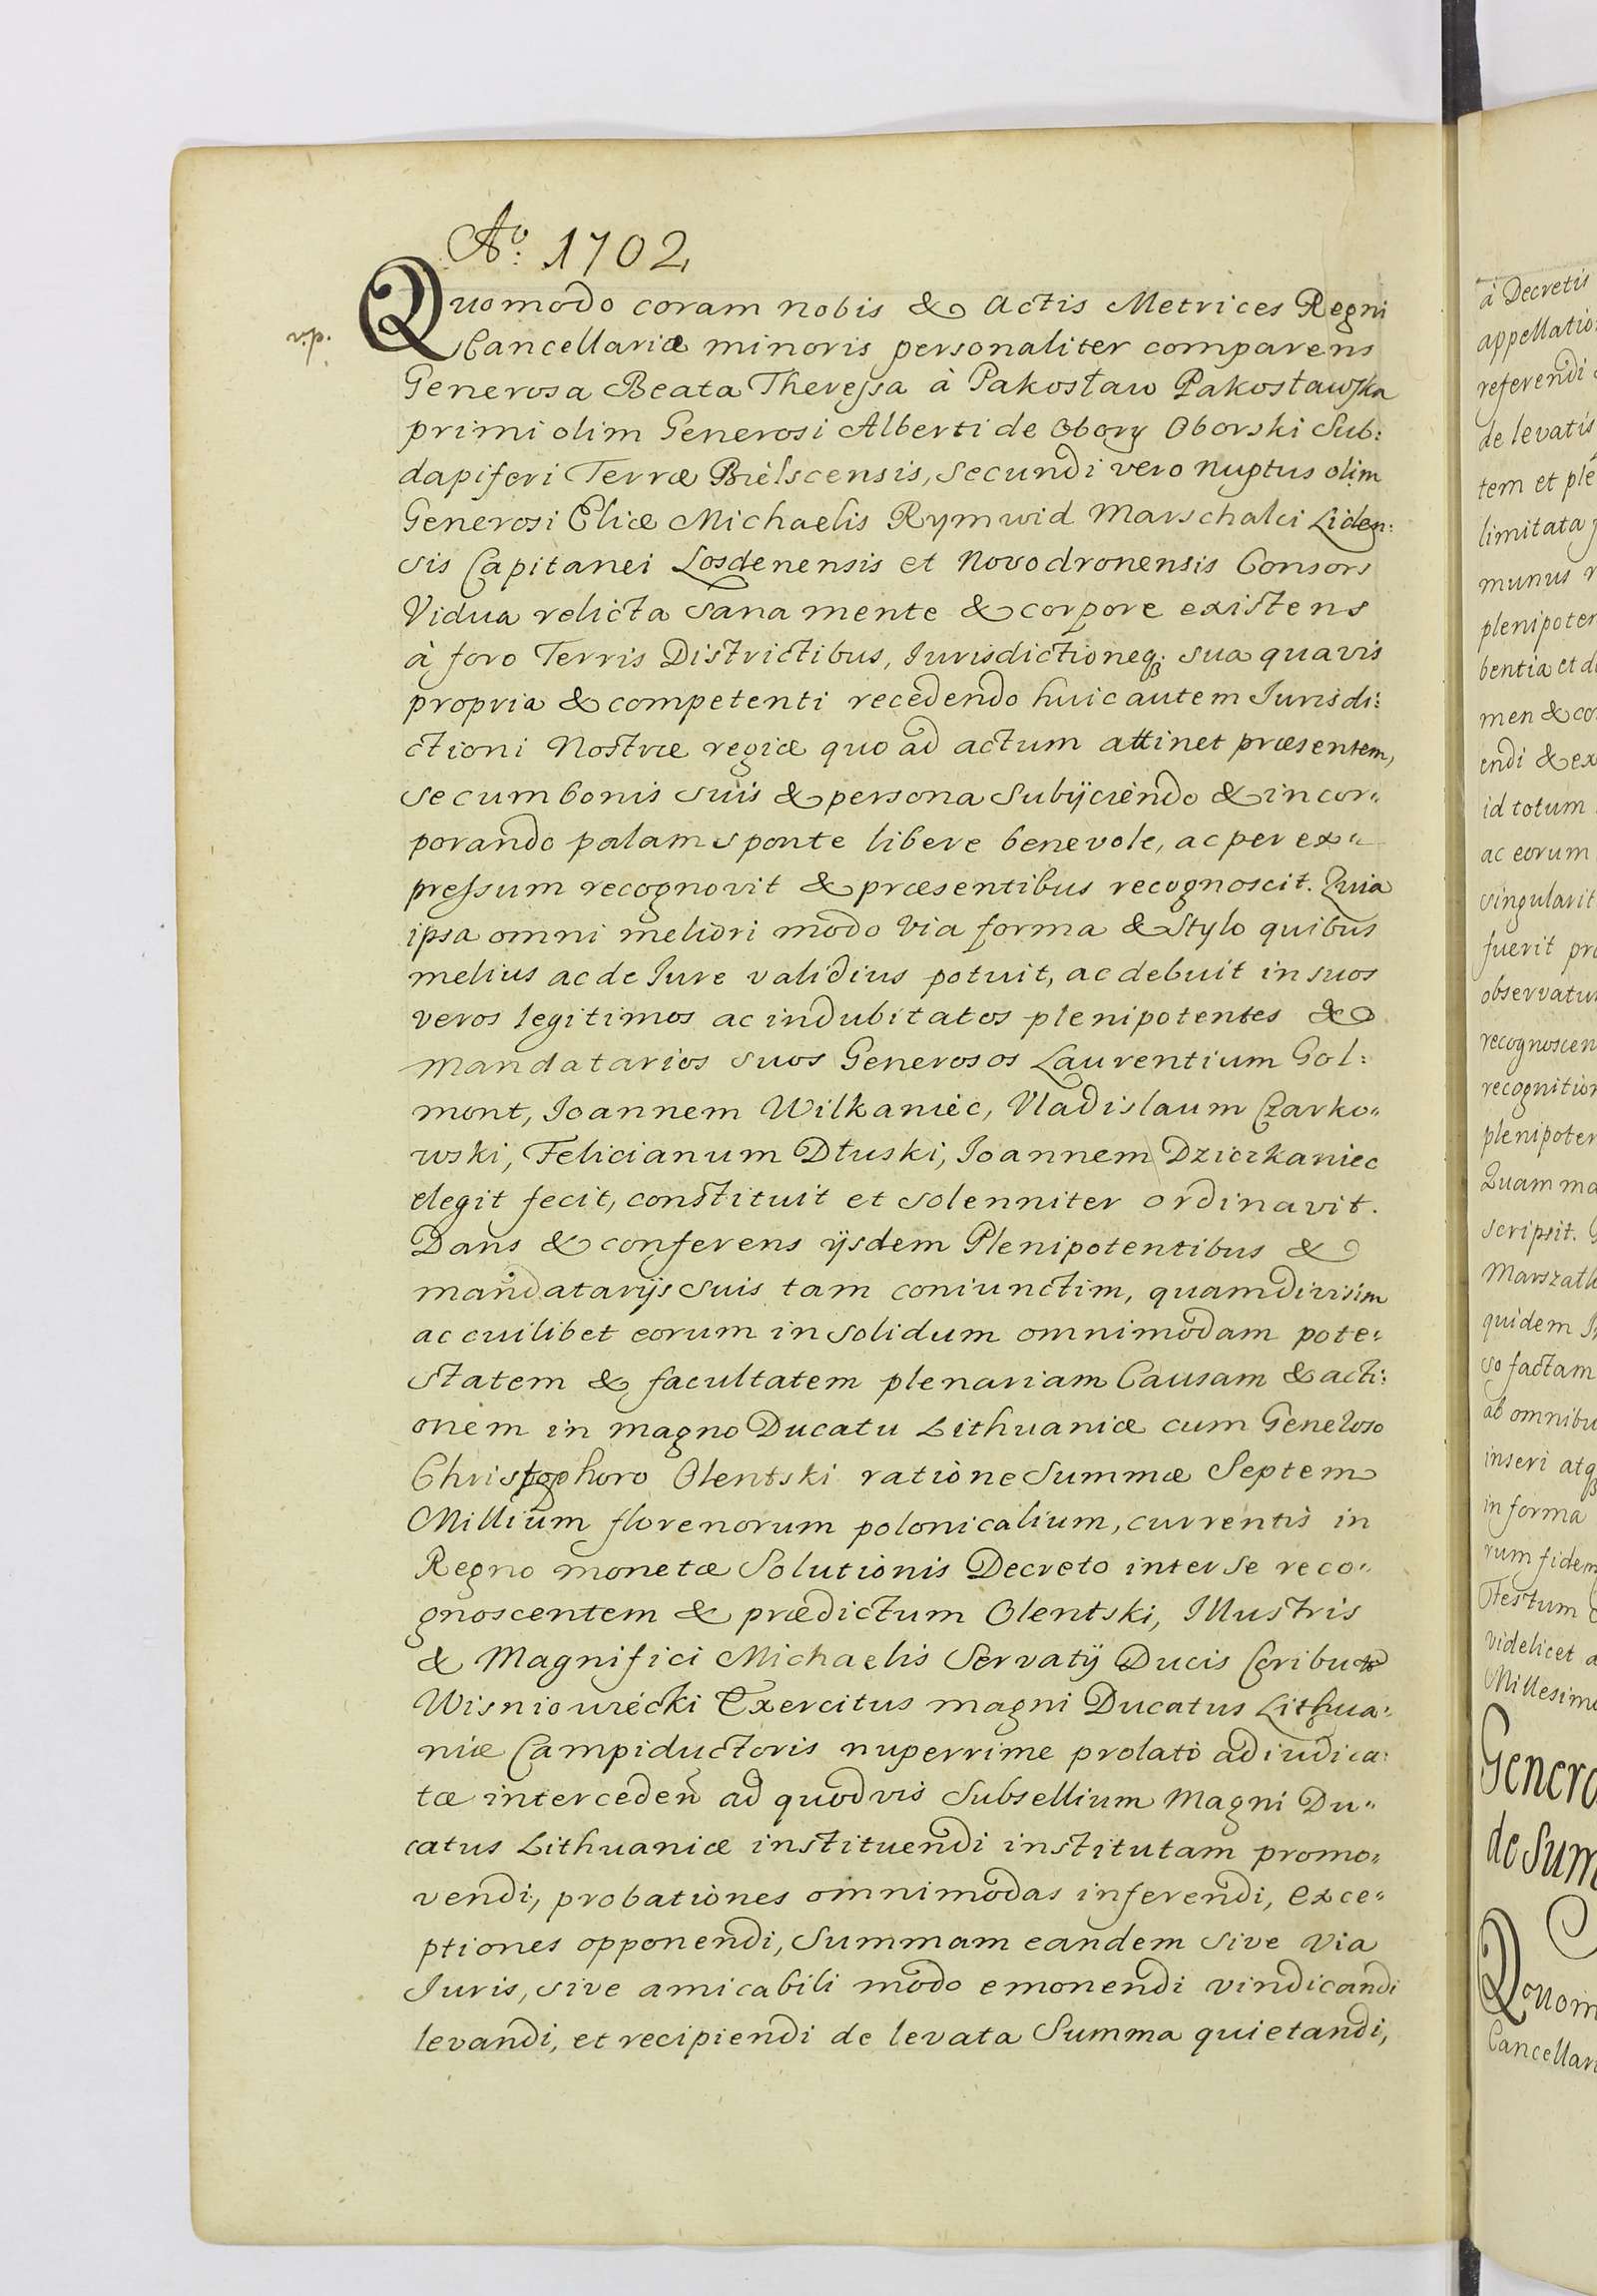 Aº: 1702
Quomodo coram nobis & Actis Metrices Regni
v.p.
Cancellariæ minoris personaliter comparens
Generosa Beata Theressa à Pakosław Pakosławska
primi olim Generosi Alberti de Obory Oborski Sub:
dapiferi Terræ Bielscensis, secundi vero nuptus olim
Generosi Eliæ Michaelis Rymwid Marschalci Liden:
sis Capitanei Losdenensis et Novodronensis Consors
Vidua relicta sana mente & corpore existens
à foro Terris Districtibus, Iurisdictioneq; sua quavis
propria & competenti recedendo huic autem Iurisdi:
ctioni Nostræ regiæ quo ad actum attinet præsentem,
se cum bonis suis & persona subijciendo & incor„
porando palam sponte libere benevole, ac per ex„
pressum recognovit & præsentibus recognoscit. Quia
ipsa omni meliori modo via forma & stylo quibus
melius ac de Iure validius potuit, ac debuit in suos
veros legitimos ac indubitatos plenipotentes &
Mandatarios suos Generosos Laurentium Gol:
mont, Ioannem Wilkaniec, Vladislaum Czarko„
wski, Felicianum Dłuski, Ioannem Dziczkaniec
elegit fecit, constituit et solenniter ordinavit.
Dans & conferens ijsdem Plenipotentibus &
mandatarijs suis tam coniunctim, quam divisim
ac cuilibet eorum in solidum omnimodam pote:
statem & facultatem plenariam Causam & acti:
onem in magno Ducatu Lithuaniæ cum Generoso
Christophoro Olentski ratione Summæ Septem
Millium florenorum polonicalium, currentis in
Regno monetæ Solutionis Decreto inter se reco„
gnoscentem & prædictum Olentski, Illustris
& Magnifici Michaelis Servatij Ducis Coributo
Wisniowiecki Exercitus magni Ducatus Lithua„
niæ Campiductoris nuperrime prolato adiudica:
tæ interceden ad quodvis Subsellium Magni Du„
catus Lithuaniæ instituendi institutam promo„
vendi, probationes omnimodas inferendi, exce„
ptiones opponendi, Summam eandem sive via
Iuris, sive amicabili modo emonendi vindicandi
levandi, et recipiendi de levata Summa quietandi,
à Decretis
appellatio
referendi
de levatis
tem et ple
limitata
munus
plenipoten
bentia et d
men & co
endi & ex
id totum
ac eorum
singularit
fuerit pr
observatu
recognoscen
recognition
plenipoten
Quam ma
scripsit.
Marszałk
quidem
so factam
ab omnibu
inseri atq
in forma
rum fidem
Festum
videlicet
Millesimo
Genero
de Sum
Quom
Cancellari